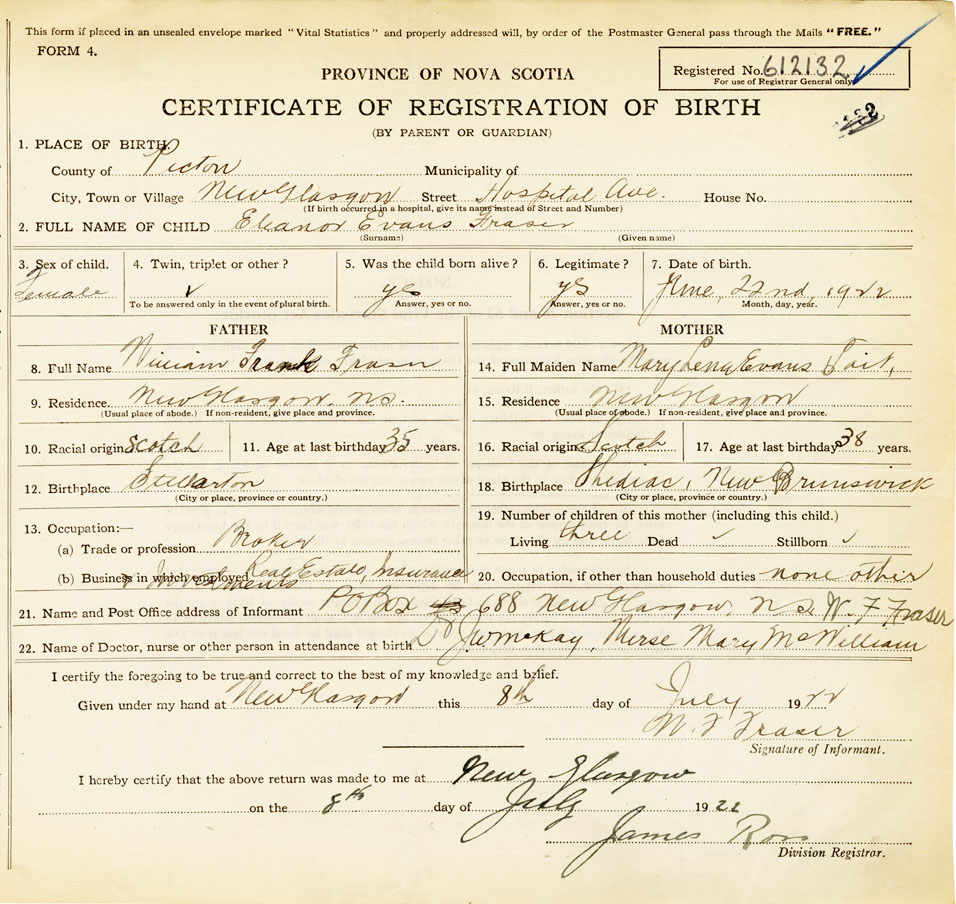 This form if placed in an unsealed envelope marked "Vital Statistics" and properly addressed will, by order of the Postmaster General pass through the Mails "FREE."
FORM 4.
Registered No. 612132
For use of Registrar General only
PROVINCE OF NOVA SCOTIA
CERTIFICATE OF REGISTRATION OF BIRTH
(BY PARENT OR GUARDIAN)
1. PLACE OF BIRTH
County of Picton Municipality of
City, Town or Village New Glasgow Street Hospital Ave. House No.
(If birth occurred in a hospital, give its name instead of Street and Number)
2. FULL NAME OF CHILD Eleanor Evans Fraser
(Surname) (Given name)
3. Sex of child. 4. Twin, triplet or other? 5. Was the child born alive? 6. Legitimate? 7. Date of birth.
Female yes yes June, 22nd, 1922
To be answered only in the event of plural birth. Answer, yes or no. Answer, yes or no. Month, day, year.
FATHER MOTHER
8. Full Name William Frank Fraser 14. Full Maiden Name Mary Lena Evans Tait,
9. Residence. New Glasgow, N.S. 15. Residence New Glasgow
(Usual place of abode.) If non-resident, give place and province. (Usual place of abode.) If non-resident, give place and province.
10. Racial origin Scotch 11. Age at last birthday 35 years. 16. Racial origin Scotch 17. Age at last birthday 38 years.
12. Birthplace Stellarton 18. Birthplace Shediac, New Brunswick
(City or place, province or country.) (City or place, province or country.)
13. Occupation:— 19. Number of children of this mother (including this child.)
(a) Trade or profession Broker Living three Dead Stillborn
(b) Business in which employed Real Estate, Insurance 20. Occupation, if other than household duties none other
& Investments
21. Name and Post Office address of Informant P O Box 688 New Glasgow, N.S. W. F Fraser
22. Name of Doctor, nurse or other person in attendance at birth Dr J W McKay, Nurse Mary McWilliam
I certify the foregoing to be true and correct to the best of my knowledge and belief.
Given under my hand at New Glasgow this 8th day of July 1922
W. F Fraser
Signature of Informant.
I hereby certify that the above return was made to me at New Glasgow
on the 8th day of July 1922
James Ross
Division Registrar.